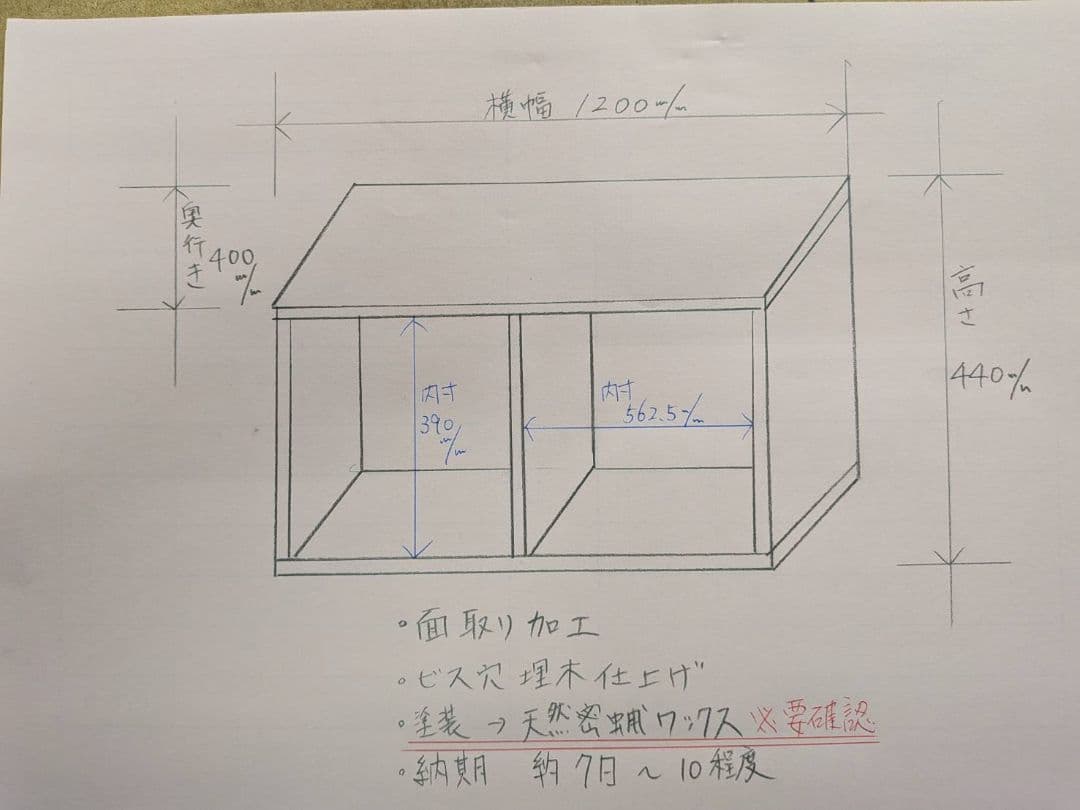 横幅 1200m/m
奥行き
400
m/m
高さ
440m/m
内寸
390
m/m
内寸
562.5m/m
・面取り加工
・ビス穴埋木仕上げ
・塗装→天然密蝋ワックス ※要確認
・納期 約7日〜10程度